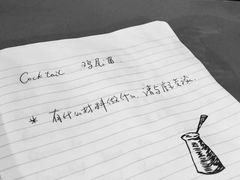 Cocktail 鸡尾酒
* 有什么材料做什么,请与店主交流.